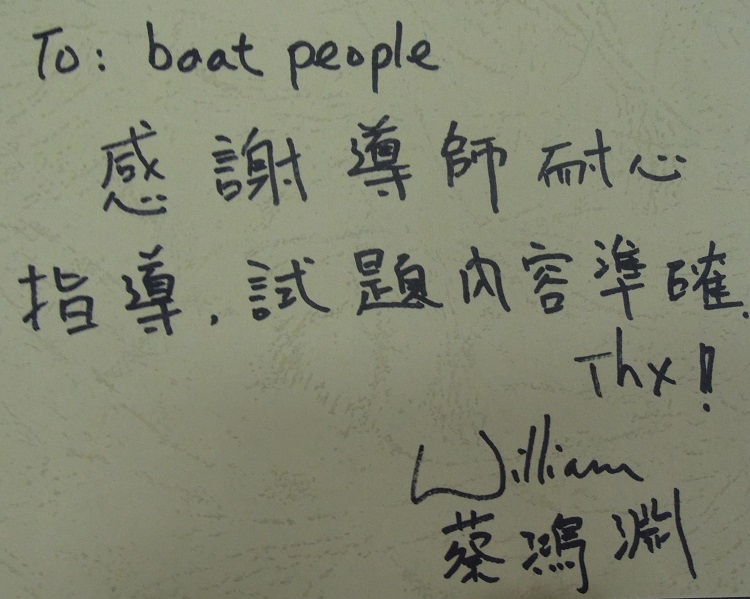 To: boat people
感謝導師耐心
指導，試題內容準確.
Thx!
William
蔡鴻淵